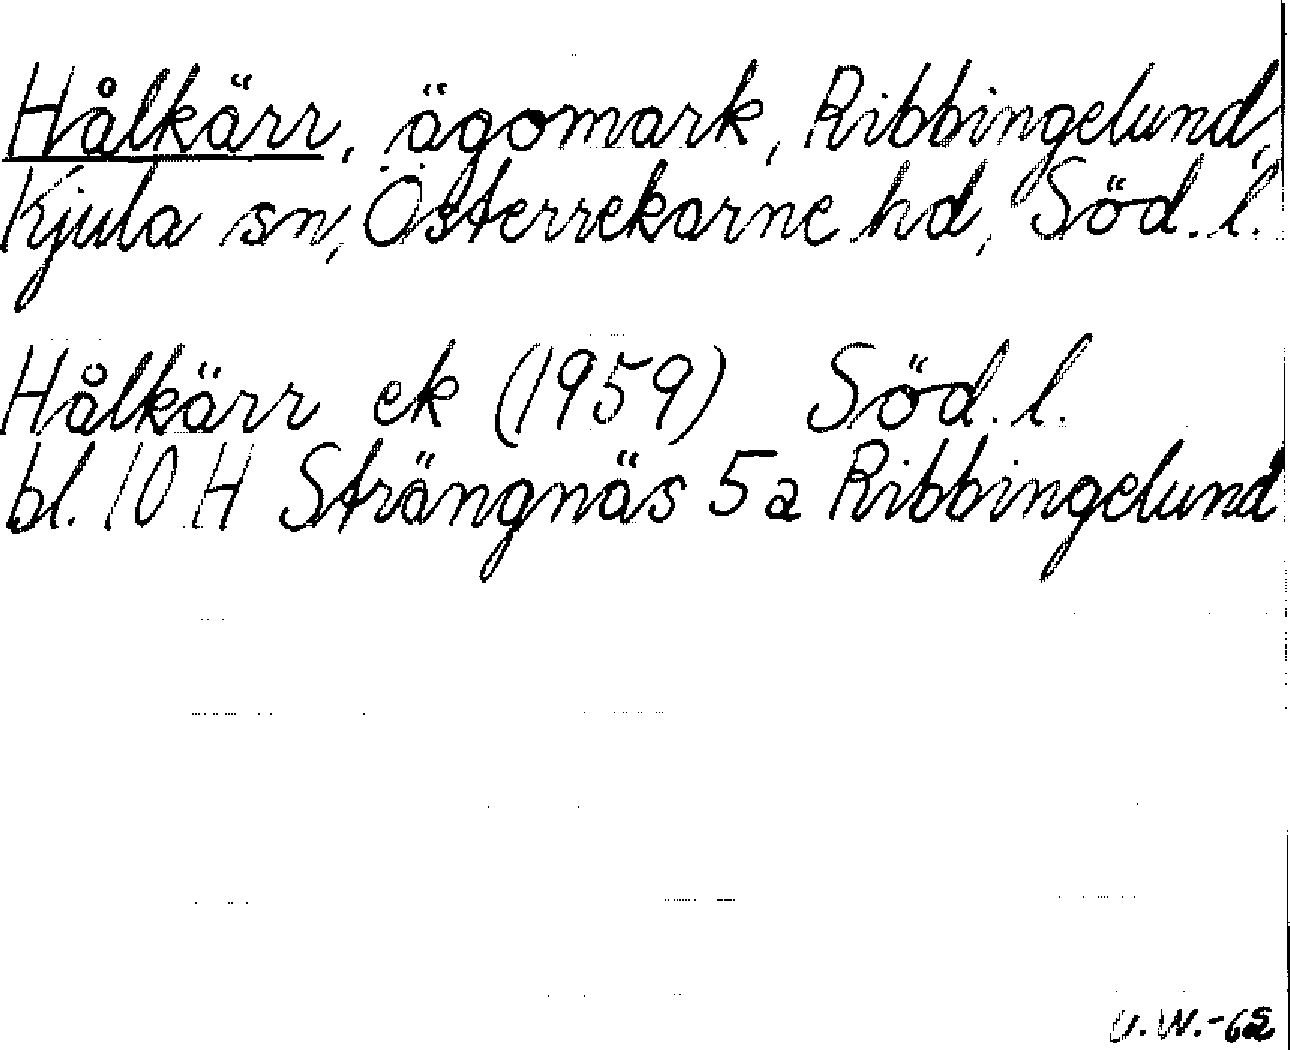 Hålkärr, ägomark, Ribbingelund,
Kjula sn, Österrekarne hd, Söd. l.
Hålkärr ek (1959) Söd. l.
bl. 10 H Strängnäs 5a Ribbingelund
U.W.-62